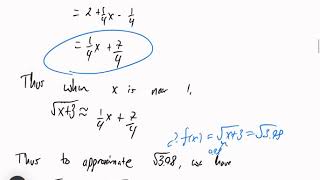 = 2 + 1/4 x - 1/4
= 1/4 x + 7/4
Thus when x is near 1,
√x+3 ≈ 1/4 x + 7/4
f(x) = √x+3 = √3.98
Thus to approximate √3.98, we have